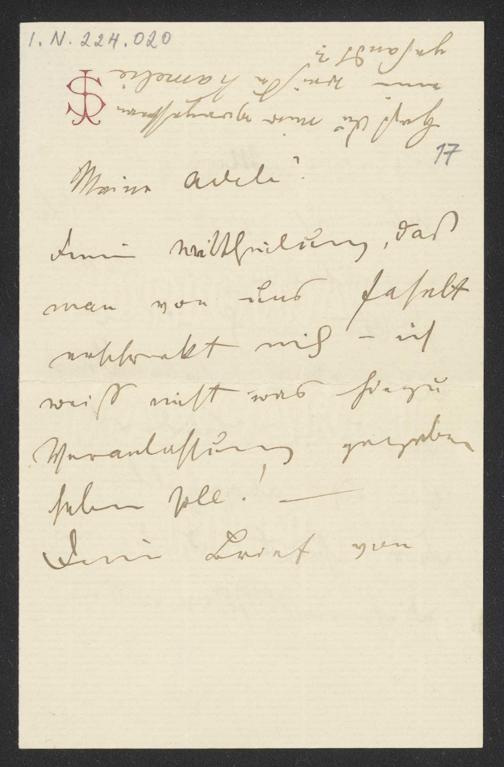 I.N. 224.020
Hast du mir vorgestern
eine weiße Kamelie
gesandt?
JS
17
Meine Adele!
Deine Mittheilung, daß
man von uns faselt
erschrekt mich – ich
weiß nicht was hiezu
Veranlassung gegeben
haben soll! –
Dein Brief von